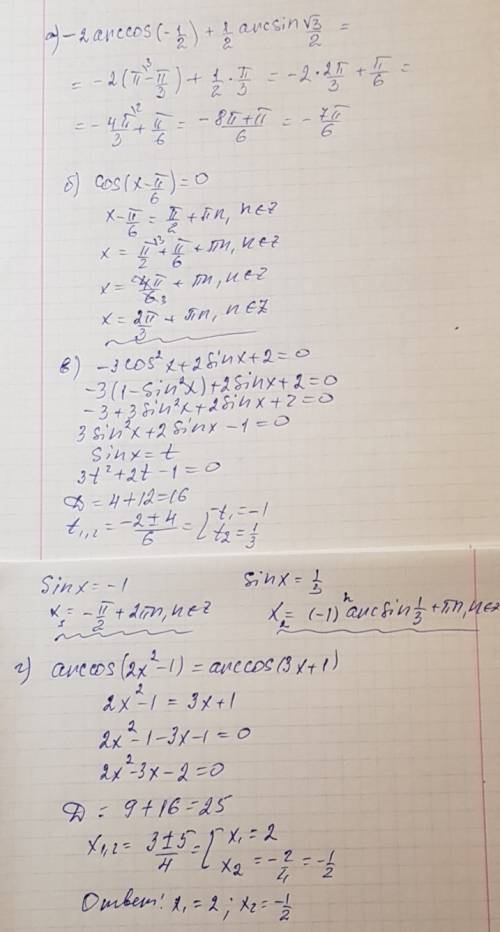 а) -2 arccos(-1/2) + 1/2 arcsin √3/2 =
= -2(π - π/3) + 1/2 · π/3 = -2 · 2π/3 + π/6 =
= -4π/3 + π/6 = -8π+π/6 = -7π/6
б) cos(x - π/6) = 0
x - π/6 = π/2 + πn, n∈z
x = π/2 + π/6 + πn, n∈z
x = 4π/6 + πn, n∈z
x = 2π/3 + πn, n∈z
в) -3cos²x + 2sinx + 2 = 0
-3(1 - sin²x) + 2sinx + 2 = 0
-3 + 3sin²x + 2sinx + 2 = 0
3sin²x + 2sinx - 1 = 0
sinx = t
3t² + 2t - 1 = 0
D = 4 + 12 = 16
t₁,₂ = -2±4/6 = [t₁ = -1 t₂ = 1/3
sinx = -1 sinx = 1/3
x₁ = -π/2 + 2πn, n∈z x₂ = (-1)ⁿ arcsin 1/3 + πn, n∈z
г) arccos(2x²-1) = arccos(3x+1)
2x² - 1 = 3x + 1
2x² - 1 - 3x - 1 = 0
2x² - 3x - 2 = 0
D = 9 + 16 = 25
x₁,₂ = 3±5/4 = [x₁ = 2 x₂ = -2/4 = -1/2
Ответ: x₁ = 2; x₂ = -1/2